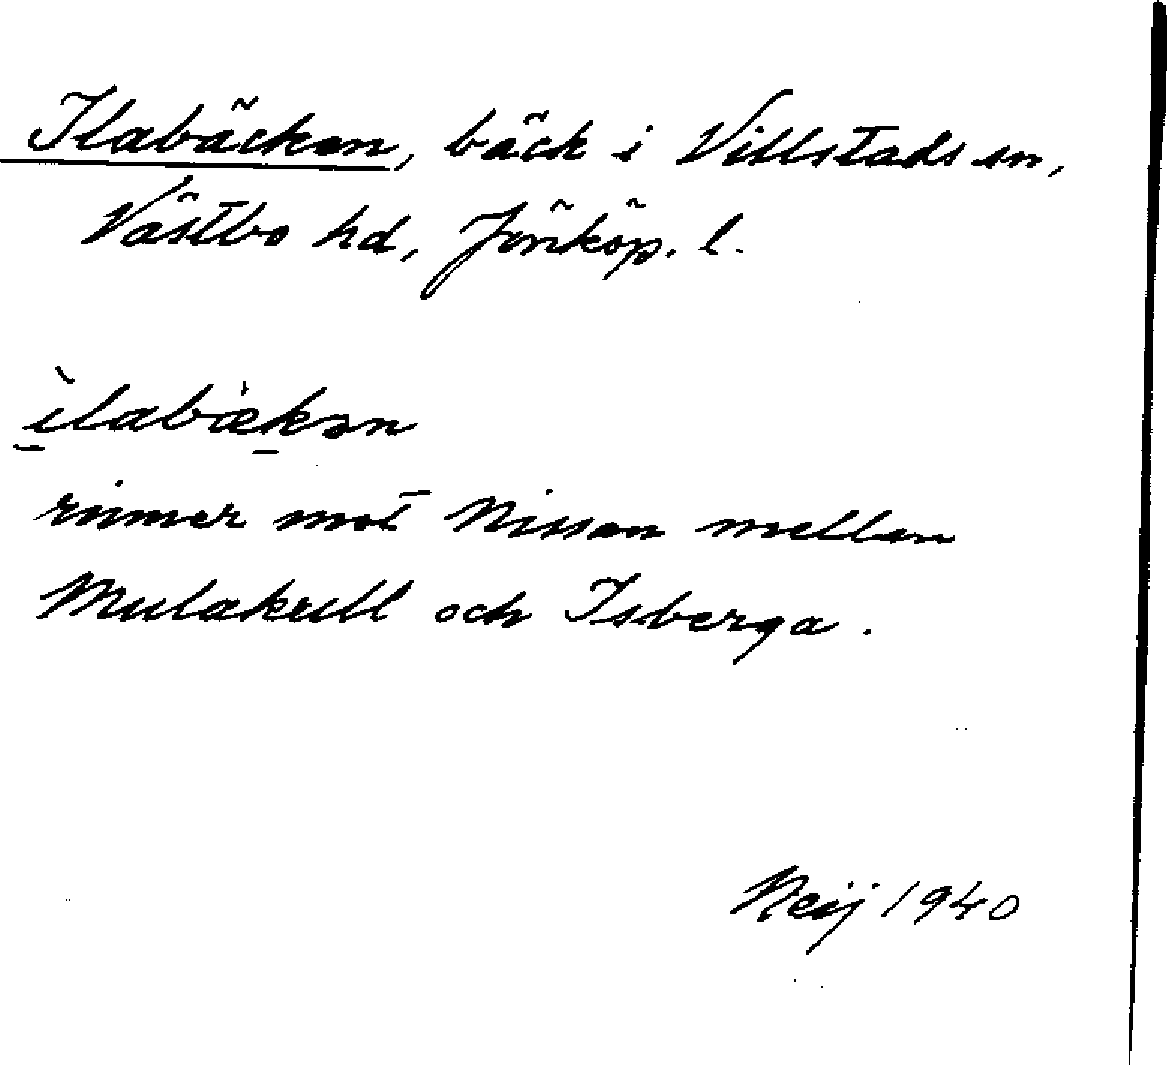 Ilabäcken, bäck i Villstads sn,
Västbo hd, Jönköp. l.
ı̀labæ̀kən
rinner mot Nissan mellan
Mulakull och Isberga.
Neij 1940